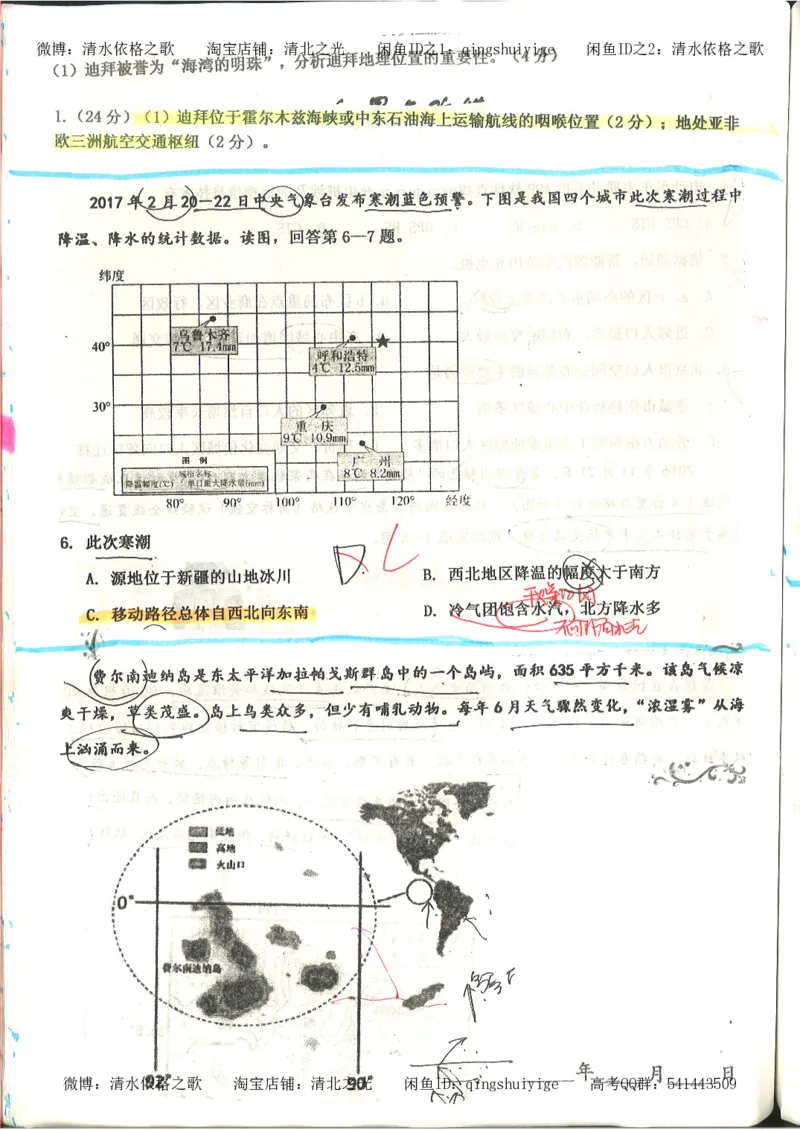 微博：清水依格之歌 淘宝店铺：清北之光 闲鱼ID之1：qingshuiyige 闲鱼ID之2：清水依格之歌
（1）迪拜被誉为“海湾的明珠”，分析迪拜地理位置的重要性。（4分）
1.（24分）（1）迪拜位于霍尔木兹海峡或中东石油海上运输航线的咽喉位置（2分）；地处亚非
欧三洲航空交通枢纽（2分）。
2017年2月20—22日中央气象台发布寒潮蓝色预警。下图是我国四个城市此次寒潮过程中
降温、降水的统计数据。读图，回答第6—7题。
纬度
乌鲁木齐
7℃ 17.4mm
40°
呼和浩特
4℃ 12.5mm
30°
重庆
9℃ 10.9mm
广州
8℃ 8.2mm
图例
城市名称
降温幅度(℃) 单日最大降水量(mm)
80° 90° 100° 110° 120° 经度
6. 此次寒潮
A. 源地位于新疆的山地冰川
B. 西北地区降温的幅度大于南方
C. 移动路径总体自西北向东南
D. 冷气团饱含水汽，北方降水多
费尔南迪纳岛是东太平洋加拉帕戈斯群岛中的一个岛屿，面积635平方千米。该岛气候凉
爽干燥，草类茂盛。岛上鸟类众多，但少有哺乳动物。每年6月天气骤然变化，“浓湿雾”从海
上汹涌而来。
低地
高地
火山口
0°
费尔南迪纳岛
92° 90°
年 月 日
微博：清水依格之歌 淘宝店铺：清北之光 闲鱼ID：qingshuiyige 高考QQ群：541443509